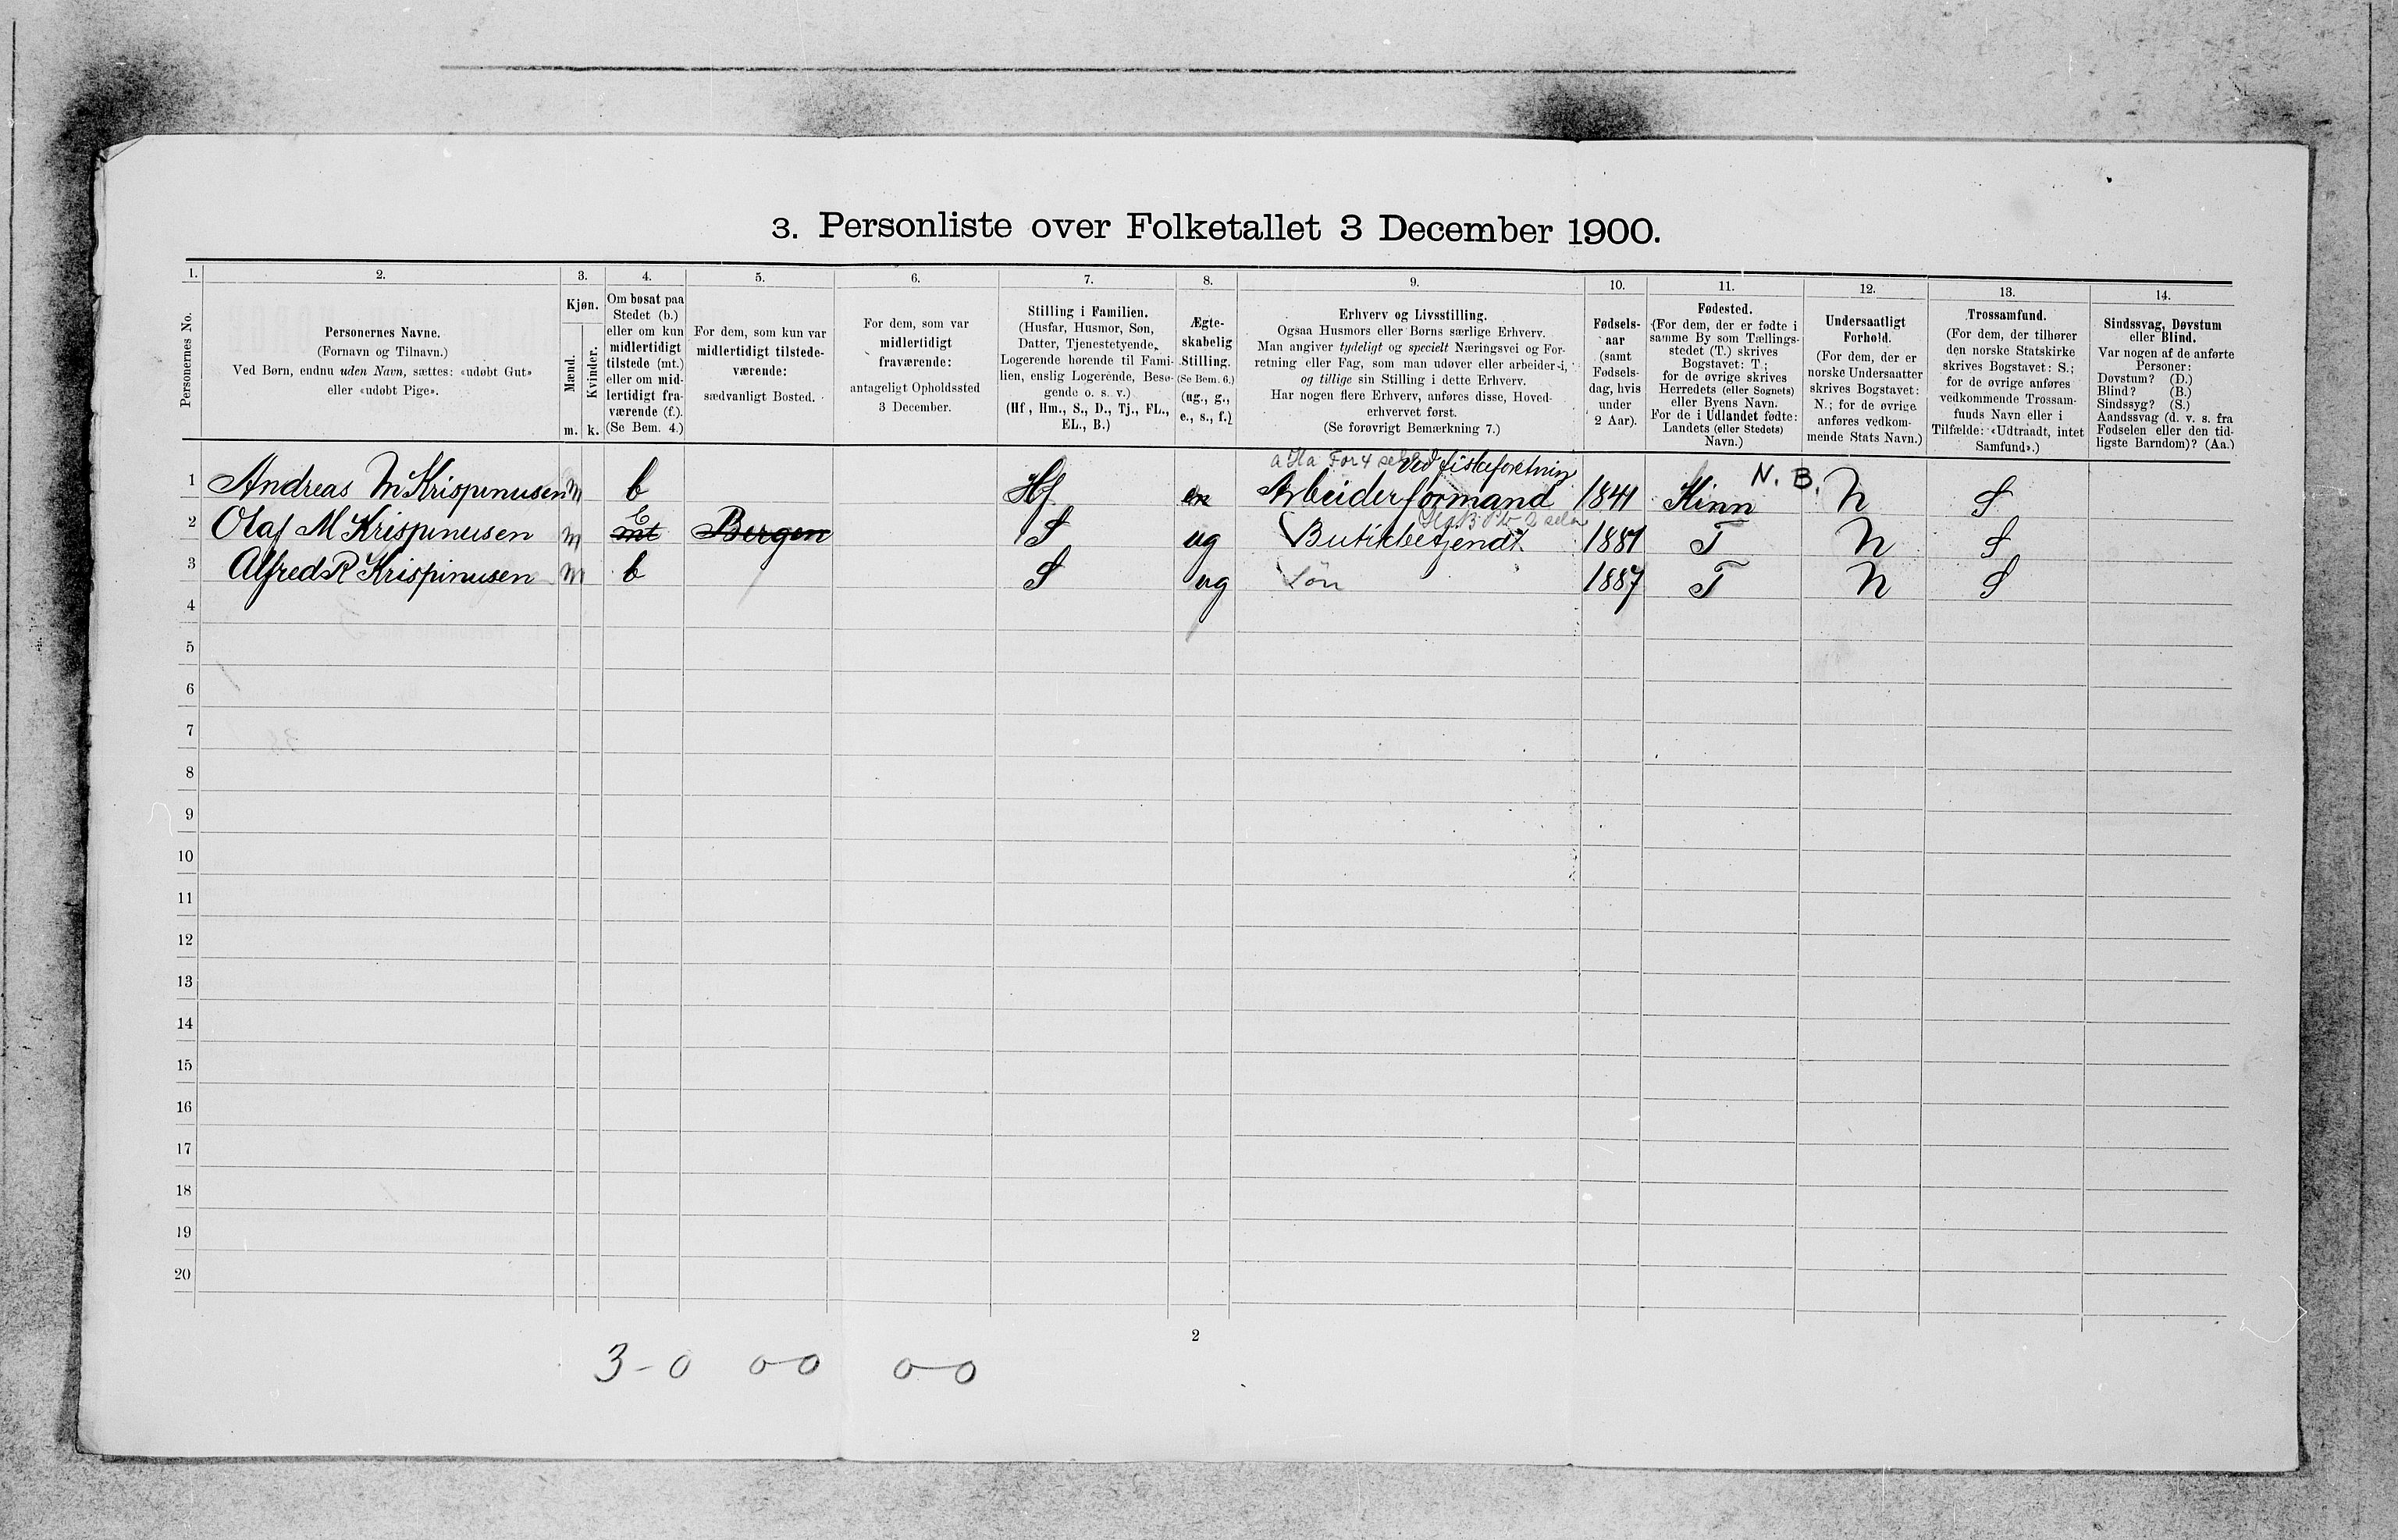 3. Personliste over Folketallet 3 December 1900.
1. 2. 3. 4. 5. 6. 7. 8. 9. 10. 11. 12. 13. 14.
Personernes No.
Personernes Navne.
(Fornavn og Tilnavn.)
Ved Børn, endnu uden Navn, sættes: «udøbt Gut»
eller «udøbt Pige».
Kjøn.
Mænd.
Kvinder.
m. k.
Om bosat paa
Stedet (b.)
eller om kun
midlertidigt
tilstede (mt.)
eller om mid-
lertidigt fra-
værende (f.).
(Se Bem. 4.)
For dem, som kun var
midlertidigt tilstede-
værende:
sædvanligt Bosted.
For dem, som var
midlertidigt
fraværende:
antageligt Opholdssted
3 December.
Stilling i Familien.
(Husfar, Husmor, Søn,
Datter, Tjenestetyende,
Logerende hørende til Fami-
lien, enslig Logerende, Besø-
gende o. s. v.)
(Hf, Hm., S., D., Tj., FL.,
EL., B.)
Ægte-
skabelig
Stilling.
(Se Bem. 6.)
(ug., g.,
e., s., f.)
Erhverv og Livsstilling.
Ogsaa Husmors eller Børns særlige Erhverv.
Man angiver tydeligt og specielt Næringsvei og For-
retning eller Fag, som man udøver eller arbeider i,
og tillige sin Stilling i dette Erhverv.
Har nogen flere Erhverv, anføres disse, Hoved-
erhvervet først.
(Se forøvrigt Bemærkning 7.)
Fødsels-
aar
(samt
Fødsels-
dag, hvis
under
2 Aar).
Fødested.
(For dem, der er fødte i
samme By som Tællings-
stedet (T.) skrives
Bogstavet: T.;
for de øvrige skrives
Herredets (eller Sognets)
eller Byens Navn.
For de i Udlandet fødte:
Landets (eller Stedets)
Navn.)
Undersaatligt
Forhold.
(For dem, der er
norske Undersaatter
skrives Bogstavet:
N.; for de øvrige
anføres vedkom-
mende Stats Navn.)
Trossamfund.
(For dem, der tilhører
den norske Statskirke
skrives Bogstavet: S.;
for de øvrige anføres
vedkommende Trossam-
funds Navn eller i
Tilfælde: «Udtraadt, intet
Samfund».)
Sindssvag, Døvstum
eller Blind.
Var nogen af de anførte
Personer:
Døvstum? (D.)
Blind? (B.)
Sindssyg? (S.)
Aandssvag (d. v. s. fra
Fødselen eller den tid-
ligste Barndom)? (Aa.)
ved fiskeforetning
1 Andreas M Krispinusen m b Hf Arbeiderformand 1841 Kinn N. B. N S
2 Olaf M Krispinusen m mt Bergen S ug Butikbetjendt 1881 T N S
3 Alfred R Krispinusen m b S ug Søn 1887 T N S
4
5
6
7
8
9
10
11
12
13
14
15
16
17
18
19
20
2
3-0 0-0 0-0